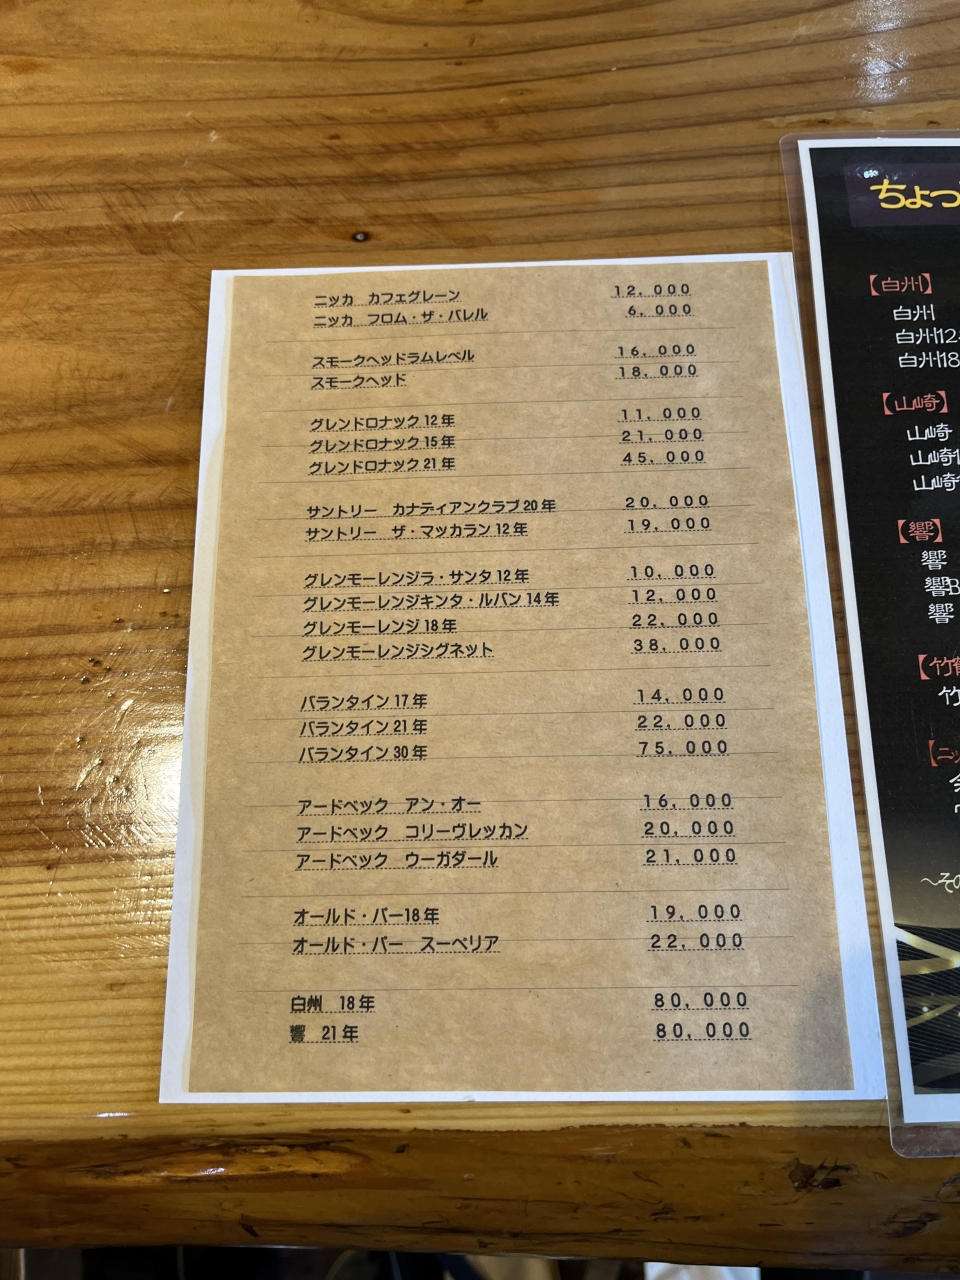 ニッカ　カフェグレーン 12,000
ニッカ　フロム・ザ・バレル 6,000
スモークヘッドラムレベル 16,000
スモークヘッド 18,000
グレンドロナック 12 年 11,000
グレンドロナック 15 年 21,000
グレンドロナック 21 年 45,000
サントリー　カナディアンクラブ 20 年 20,000
サントリー　ザ・マッカラン 12 年 19,000
グレンモーレンジラ・サンタ 12 年 10,000
グレンモーレンジキンタ・ルバン 14 年 12,000
グレンモーレンジ 18 年 22,000
グレンモーレンジシグネット 38,000
バランタイン 17 年 14,000
バランタイン 21 年 22,000
バランタイン 30 年 75,000
アードベック　アン・オー 16,000
アードベック　コリーヴレッカン 20,000
アードベック　ウーガダール 21,000
オールド・パー18 年 19,000
オールド・パー　スーペリア 22,000
白州　18 年 80,000
響　21 年 80,000
ちょっ
【白州】
白州
白州12
白州18
【山崎】
山崎
山崎1
山崎
【響】
響
響B
響
【竹鶴
竹
【ニッ
～その